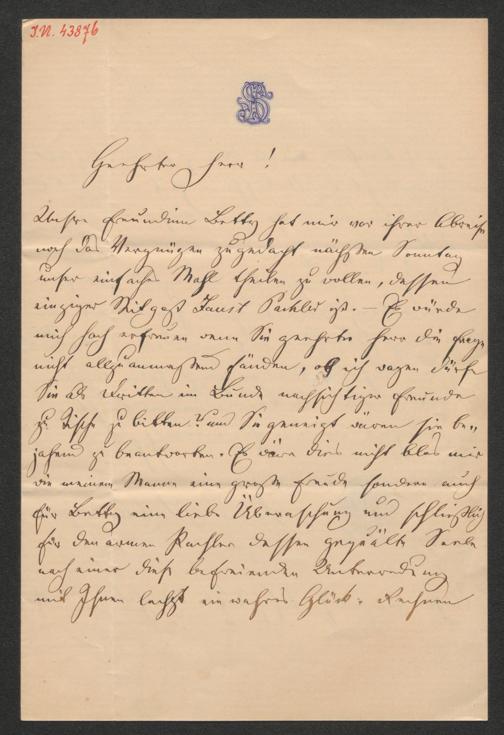 I.N. 43876
Geehrter Herr!
Unsre Freundinn Betty hat mir vor ihrer Abreise
noch das Vergnügen zugedacht nächsten Sonntag
unser einfaches Mahl theilen zu wollen, dessen
einziger Mitgast Faust Pachler ist. – Es würde
mich hoch erfreuen wenn Sie geehrter Herr die Frage
nicht allzuanmaßend fänden, ob ich wagen dürfe
Sie als Dritten im Bunde nachsichtiger Freunde
zu Tische zu bitten? und Sie geneigt wären sie be„
jahend zu beantworten. Es wäre dies nicht blos mir
wie meinem Manne eine große Freude sondern auch
für Betty eine liebe Überraschung und schließlich
für den armen Pachler dessen gequälte Seele
nach einer diese befreienden Unterredung
mit Ihnen lechzt ein wahres Glück. Rechnen